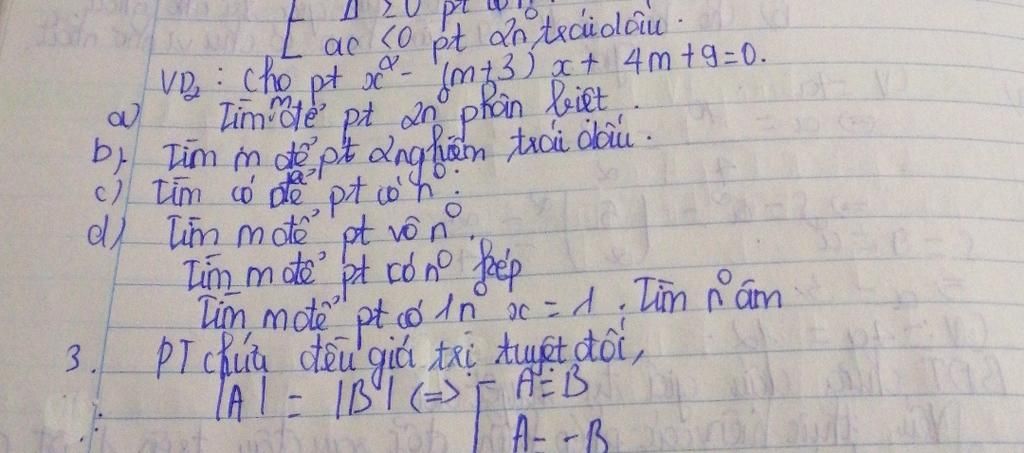 Δ ≥0 pt có n⁰
ac <0 pt 2n⁰ trái dấu.
VD₂: Cho pt x² - (m+3) x + 4m+9=0.
a) Tìm m để pt 2n⁰ phân biệt.
b) Tìm m để pt 2 nghiệm trái dấu.
c) Tìm có để pt có n⁰.
d) Tìm m để pt vô n⁰.
Tìm m để pt có n⁰ kép
Tìm m để pt có 1n⁰ x = 1. Tìm n⁰ âm
3. PT chứa dấu giá trị tuyệt đối,
|A| = |B| <=> [ A=B
A=-B